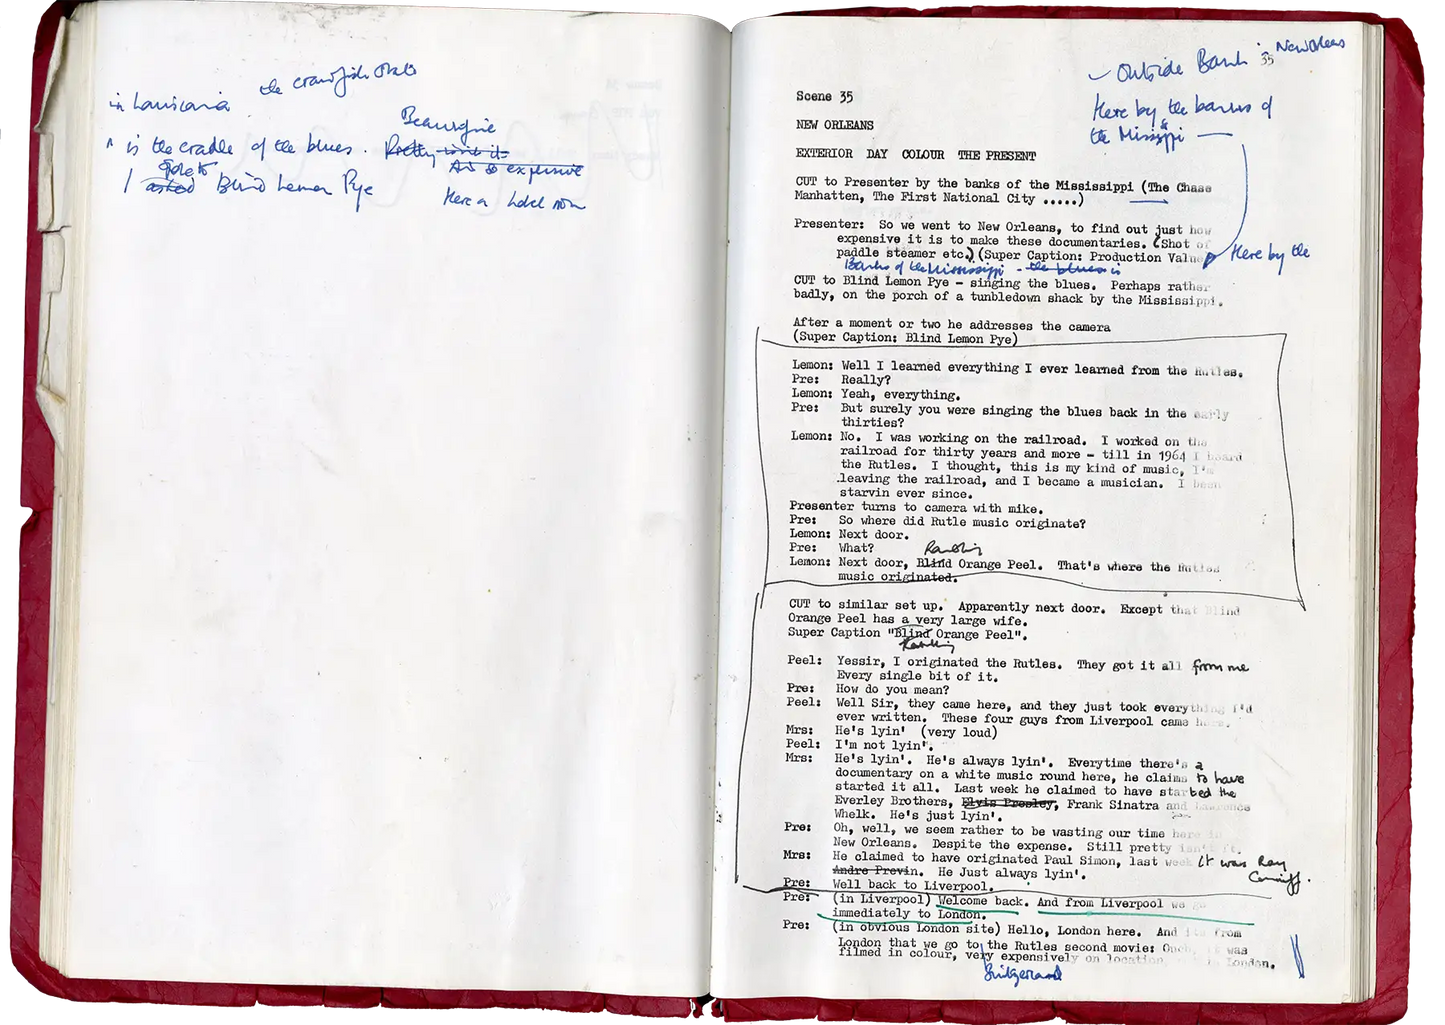 the crawfish state
in Louisiana
Beauregine
^ is the cradle of the blues. Pretty isn't it
An so expensive
spoke to
I asked Blind Lemon Pye
Here a hotel now
Outside Bank in New Orleans
35
Here by the banks of
the Mississippi
Scene 35
NEW ORLEANS
EXTERIOR DAY COLOUR THE PRESENT
CUT to Presenter by the banks of the Mississippi (The Chase
Manhatten, The First National City .....)
Presenter: So we went to New Orleans, to find out just how
expensive it is to make these documentaries. (Shot of
paddle steamer etc.) (Super Caption: Production Value
Here by the
Banks of the Mississippi - the blues is
CUT to Blind Lemon Pye - singing the blues. Perhaps rather
badly, on the porch of a tunbledown shack by the Mississippi.
After a moment or two he addresses the camera
(Super Caption: Blind Lemon Pye)
Lemon: Well I learned everything I ever learned from the Rutles.
Pre: Really?
Lemon: Yeah, everything.
Pre: But surely you were singing the blues back in the early
thirties?
Lemon: No. I was working on the railroad. I worked on the
railroad for thirty years and more - till in 1964 I heard
the Rutles. I thought, this is my kind of music, I'm
leaving the railroad, and I became a musician. I been
starvin ever since.
Presenter turns to camera with mike.
Pre: So where did Rutle music originate?
Lemon: Next door.
Pre: What?
Rambling
Lemon: Next door, Blind Orange Peel. That's where the Rutles
music originated.
CUT to similar set up. Apparently next door. Except that Blind
Orange Peel has a very large wife.
Super Caption "Blind Orange Peel".
Rambling
Peel: Yessir, I originated the Rutles. They got it all from me
Every single bit of it.
Pre: How do you mean?
Peel: Well Sir, they came here, and they just took everything I'd
ever written. These four guys from Liverpool came here.
Mrs: He's lyin' (very loud)
Peel: I'm not lyin'.
Mrs: He's lyin'. He's always lyin'. Everytime there's a
documentary on a white music round here, he claims to have
started it all. Last week he claimed to have started the
Everley Brothers, Elvis Presley, Frank Sinatra and Lawrence
Whelk. He's just lyin'.
Pre: Oh, well, we seem rather to be wasting our time here in
New Orleans. Despite the expense. Still pretty isn't it.
Mrs: He claimed to have originated Paul Simon, last week it was Ray
Conniff.
Andre Previn. He Just always lyin'.
Pre: Well back to Liverpool.
Pre: (in Liverpool) Welcome back. And from Liverpool we go
immediately to London.
Pre: (in obvious London site) Hello, London here. And its from
London that we go to the Rutles second movie: Ouch, it was
filmed in colour, very expensively on location, in London.
Switzerland